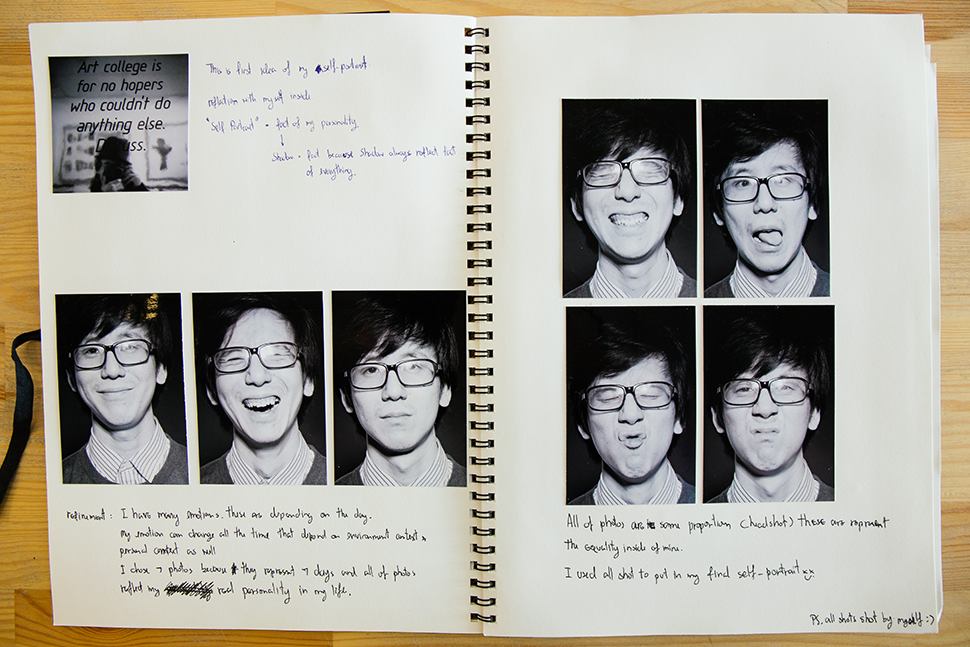 Art college is
for no hopers
who couldn't do
anything else.
This is first idea of my self-portrait
reflection with myself inside
"Self Portrait" - fact of my personality
Shadow - fact because shadow always reflect fact
of everything.
refinement : I have many emotions. these are depending on the day.
my emotion can change all the time that depend on environment context &
personal context as well
I chose 7 photos because they represent 7 days and all of photos
reflect my real personality in my life.
All of photos are same proportion (headshot) these are represent
the equality inside of mine.
I used all shot to put in my final self-portrait
PS. all shots shot by myself :)